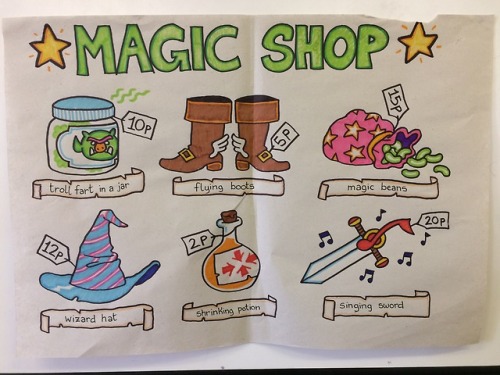 MAGIC SHOP
10p
5p
15p
troll fart in a jar
flying boots
magic beans
12p
2p
20p
wizard hat
shrinking potion
singing sword